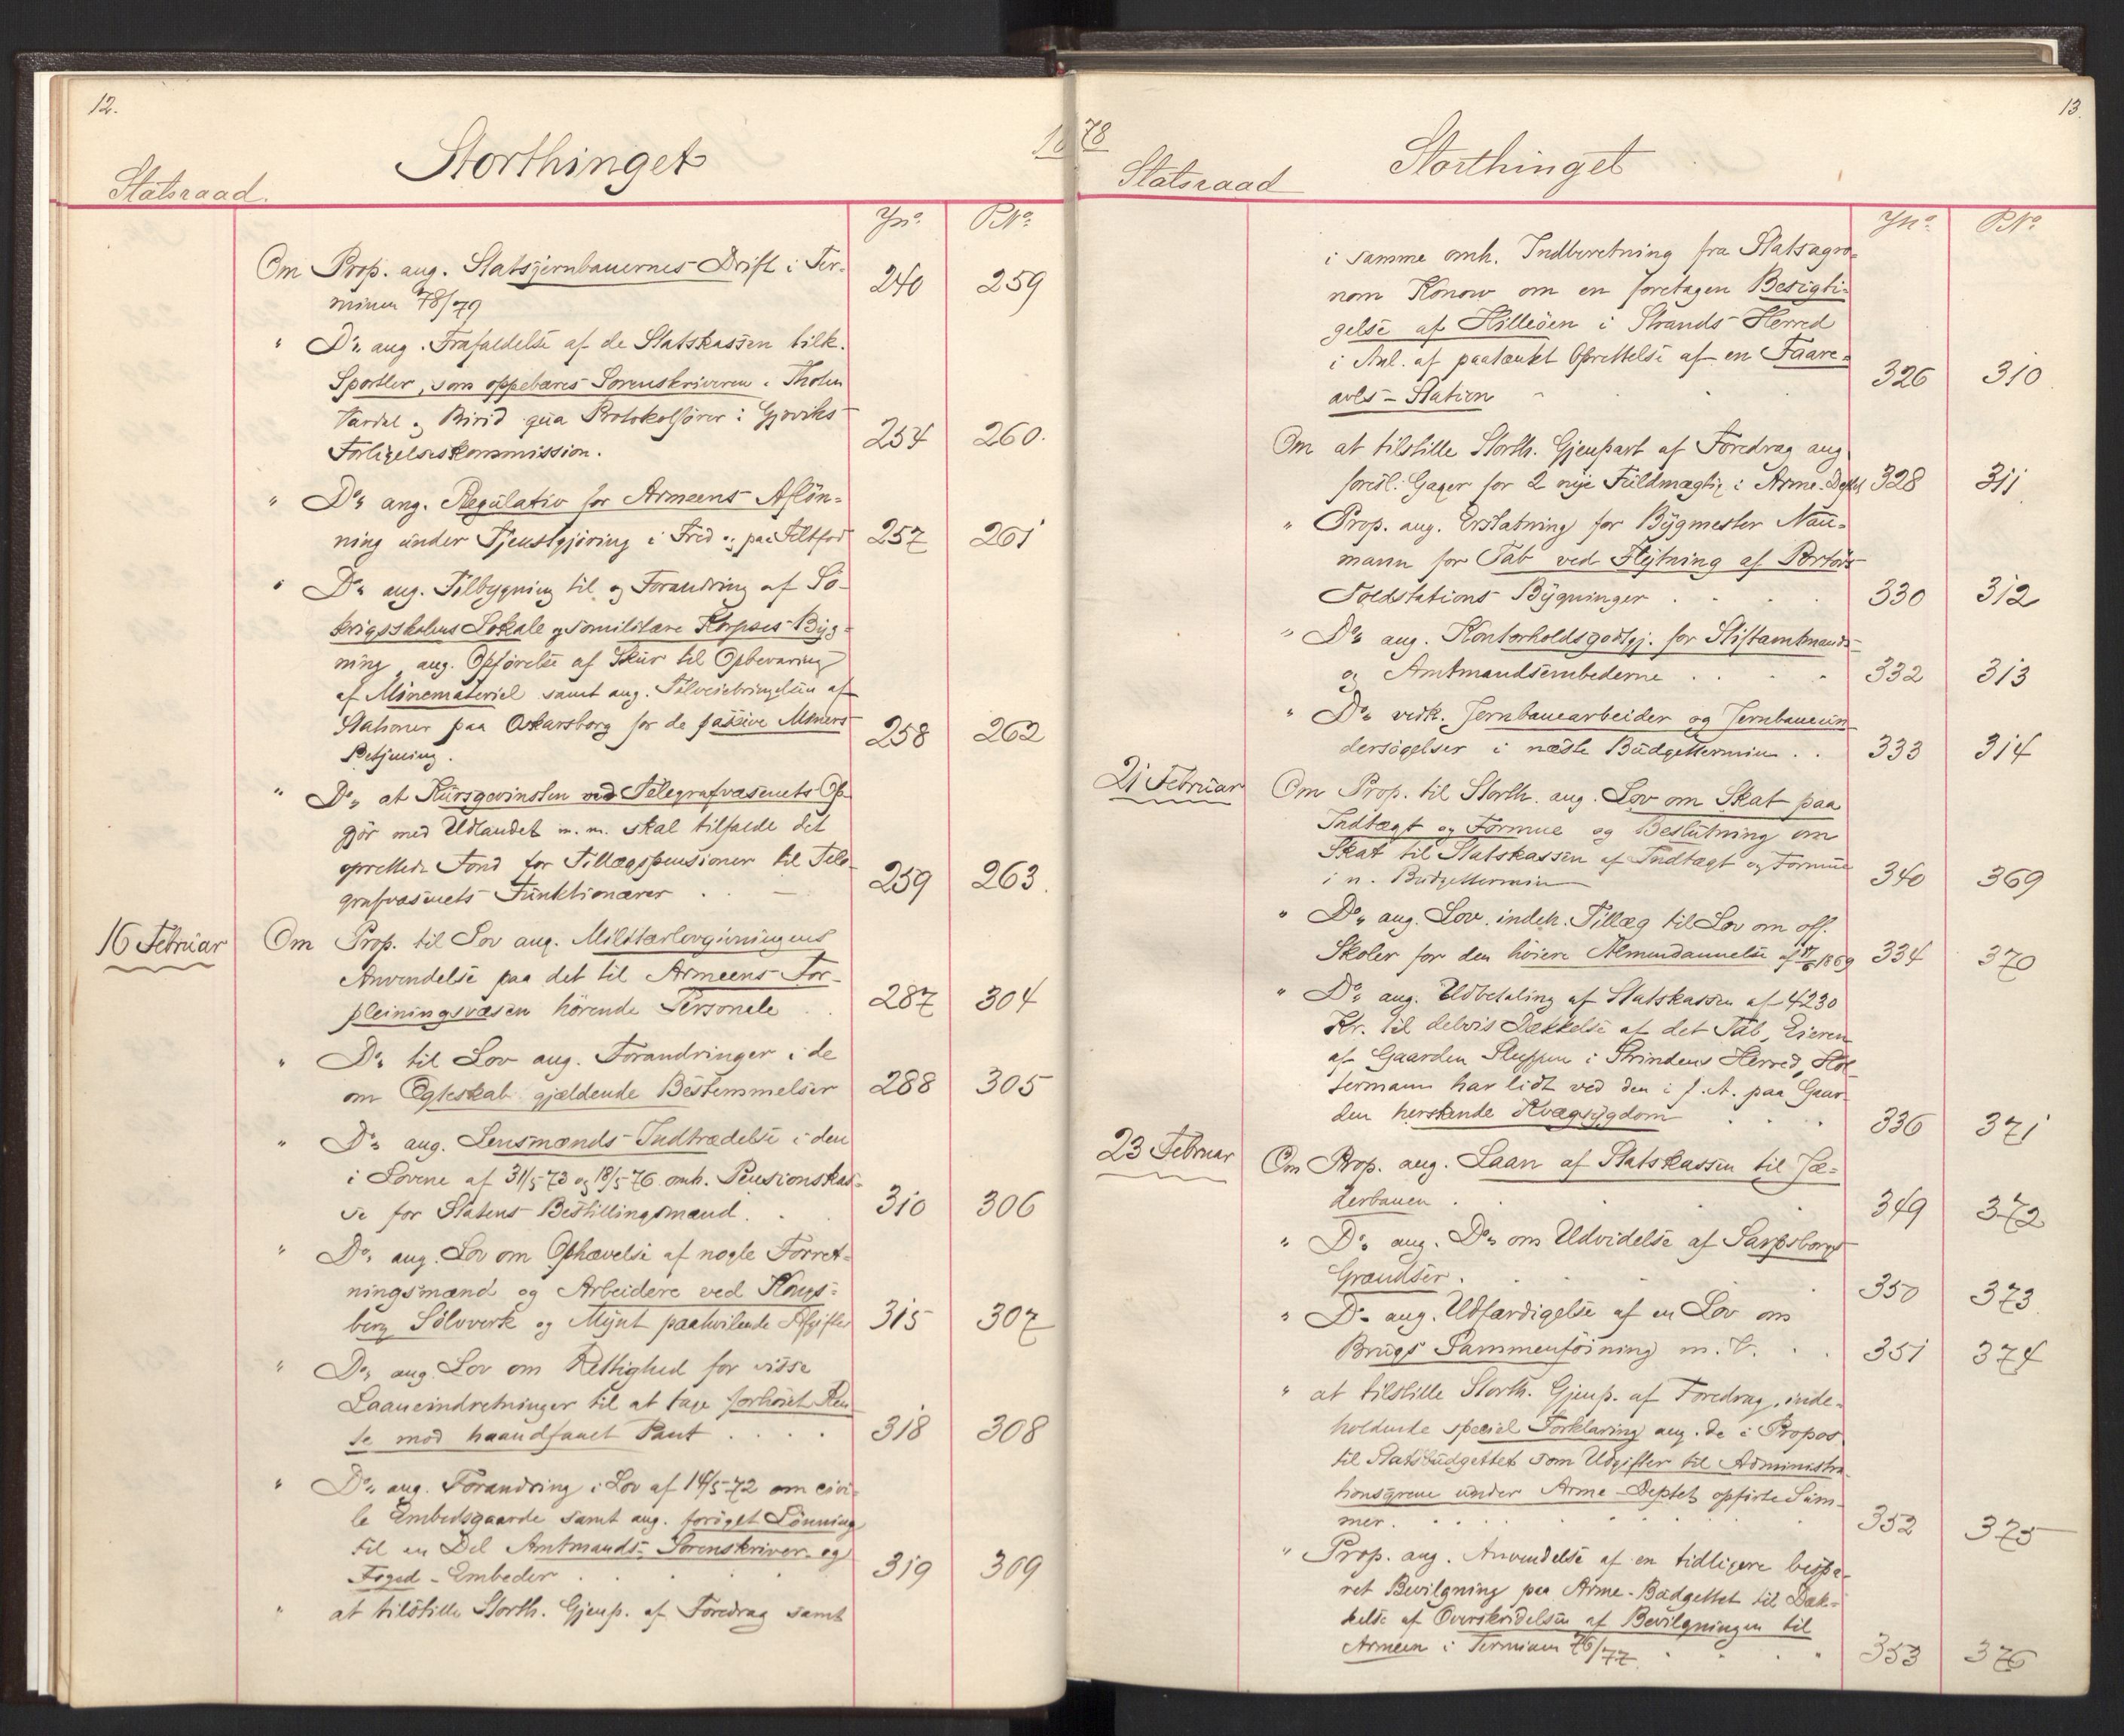 12.
Storthinget
18
Statsraad.
Jno. PNo.
Om Prop. ang. Statsjernbanernes Drift i Ter-
minen 78/79 240 259
" Do. ang. Frafaldelse af de Statskassen tilk.
Sportler, som oppebæres Sorenskriveren i Thoten
Vardal og Birid qua Protokolfører i Gjøviks
Forligelseskommission. 254 260.
" Do. ang. Regulativ for Armeens Afløn-
ning under Tjenstgjøring i Fred og paa Feltfod 257 261
" Do. ang. Tilbygning til og Forandring af Sø-
krigsskolens Lokale og Sømilitære Korpses Byg-
ning, ang. Opførelse af Skur til Opbevaring
af Minemateriel samt ang. Tilveiebringelsen af
Stationer paa Oskarsborg for de passive Miners
Betjening. 258 262
" Do. at Kursgevinsten ved Telegrafvæsenets Op-
gjør med Udlandet m. m. skal tilfalde det
oprettede Fond for Tillægspensioner til Tele-
grafvæsenets Funktionærer . — 259 263.
16 Februar Om Prop. til Lov ang. Militærlovgivningens
Anvendelse paa det til Armeens For-
pleiningsvæsen hørende Personale . . 287 304
" Do. til Lov ang. Forandringer i de
om Egteskab gjældende Bestemmelser 288 305
" Do. ang. Lensmænds Indtrædelse i den
i Lovene af 31/5 73 og 18/5 76 omh. Pensionskas-
se for Statens Bestillingsmænd. . 310 306
" Do. ang. Lov om Ophævelse af nogle Forret-
ningsmænd og Arbeidere ved Kongs-
berg Sølvverk og Mynt paahvilende Afgifter 315 307
" Do. ang. Lov om Rettighed for visse
Laaneindretninger til at tage forhøiet Ren-
te mod haandfaaet Pant . . . . 318 308
" Do. ang. Forandring i Lov af 14/5 72 om civi-
le Embedsgaarde samt ang. forøget Lønning
til en Del Amtmands- Sorenskriver- og
Foged- Embeder . . . . 319 309
" at tilstille Storth. Gjenp. af Foredrag samt
13.
78
Storthinget
Statsraad
Jno. PNo.
i samme omh. Indberetning fra Statsagro-
nom Konow om en foretagen Besigti-
gelse af Hilleøen i Strands Herred
i Anl. af paatænkt Oprettelse af en Faare-
avls-Station 326 310
Om at tilstille Storth. Gjenpart af Foredrag ang
foresl. Gager for 2 nye Fuldmægtig i Arme-Deptet 328 311
" Prop. ang. Erstatning for Bygmester Nau-
mann for Tab ved Flytning af Portørs
Toldstations Bygninger . . . . 330 312
" Do. ang. Kontorholdsgodtgj. for Stiftamtmands-
og Amtmandsembederne . . . . 332 313
" Do. vedk. Jernbanearbeider og Jernbaneun-
dersøgelser i næste Budgettermin . . 333 314
21 Februar Om Prop. til Storth. ang. Lov om Skat paa
Indtægt og Formue og Beslutning om
Skat til Statskassen af Indtægt og Formue
i n. Budgettermin 340 369
" Do. ang. Lov indeh. Tillæg til Lov om off.
Skoler for den høiere Almendannelse af 17/6 1869 334 370
" Do. ang. Udbetaling af Statskassen af 4230
Kr. til delvis Dækkelse af det Tab, Eieren
af Gaarden Sluppen i Strindens Herred, Hol-
termann har lidt ved den i f. A. paa Gaar-
den herskende Kvægsygdom . . . 336 371
23 Februar Om Prop. ang. Laan af Statskassen til Jæ-
derbanen . . . 349 372
" Do. ang. Do. om Udvidelse af Sarpsborgs
Grændser . . . 350 373
" Do. ang. Udfærdigelse af en Lov om
Brugs Sammenføining m. V. . . 351 374
" at tilstille Storth. Gjenp. af Foredrag, inde-
holdende speciel Forklaring ang. de i Propos.
til Statsbudgettet som Udgifter til Administra-
tionsgrene under Arme-Deptet opførte Sum-
mer. . . . . . 352 375
" Prop. ang. Anvendelse af en tidligere bespa-
ret Bevilgning paa Arme-Budgettet til Dæk-
kelse af Overskridelsen af Bevilgningen til
Armeen i Terminen 76/77. . . . 353 376